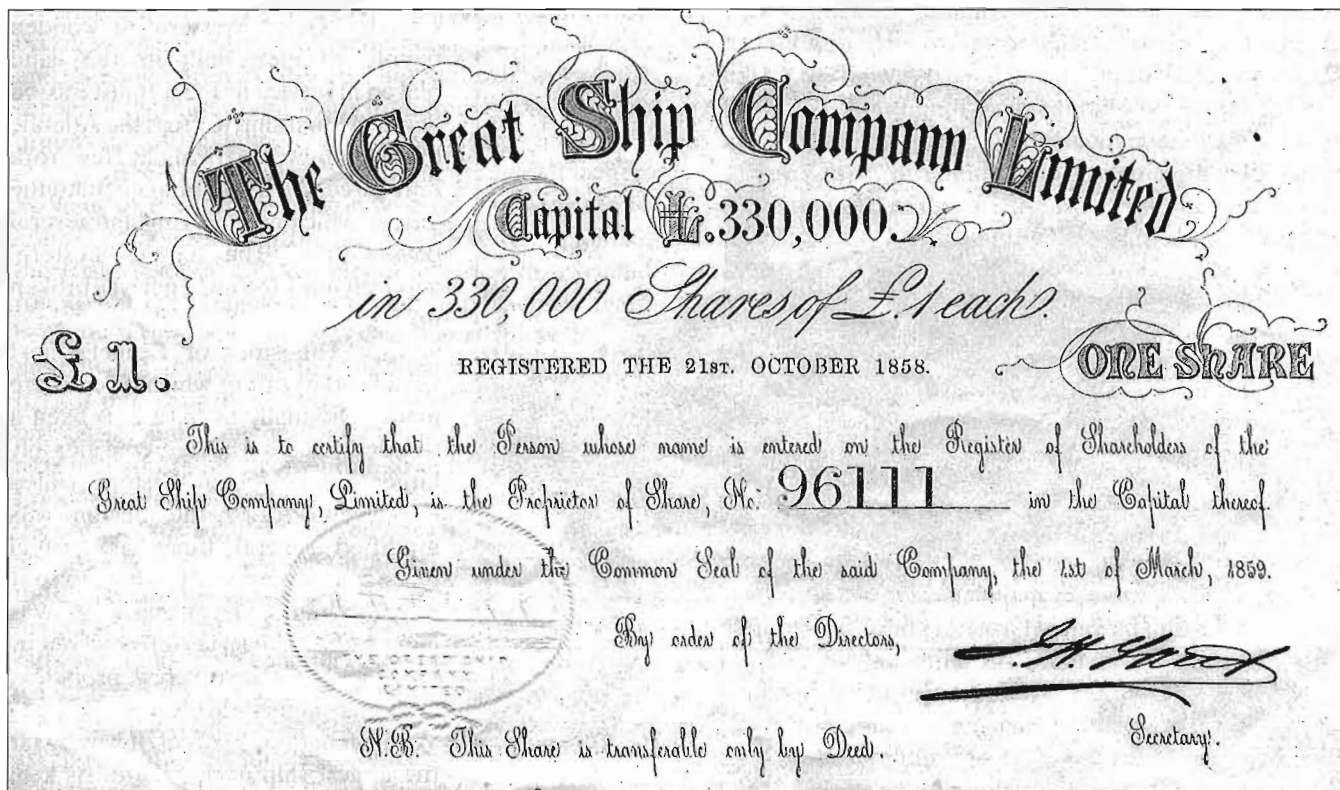 The Great Ship Company Limited
Capital £.330,000.
in 330,000 Shares of £.1 each.
£1.
REGISTERED THE 21ST. OCTOBER 1858.
ONE SHARE
This is to certify that the Person whose name is entered on the Register of Shareholders of the
Great Ship Company, Limited, is the Proprietor of Share, No. 96111 in the Capital thereof.
Given under the Common Seal of the said Company, the 1st of March, 1859.
By order of the Directors,
Secretary.
N.B. This Share is transferable only by Deed.